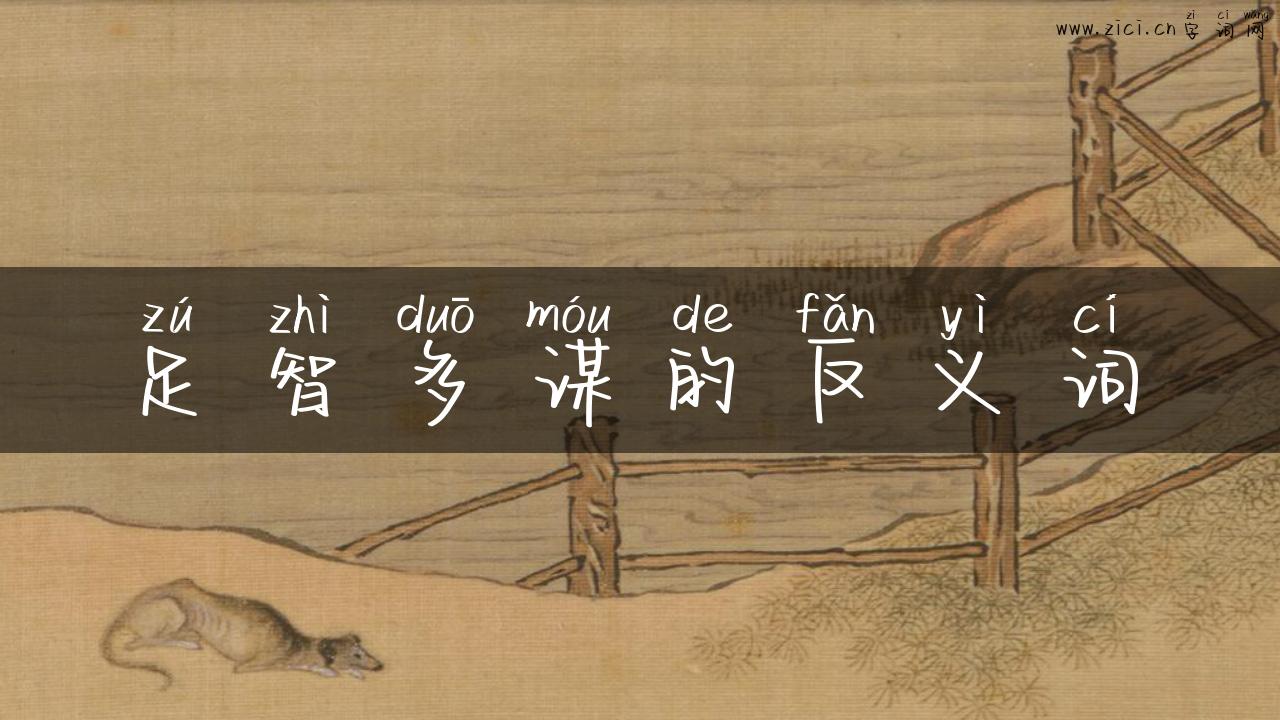 zi ci wang
www.zici.cn字词网
zú zhì duō móu de fǎn yì cí
足智多谋的反义词